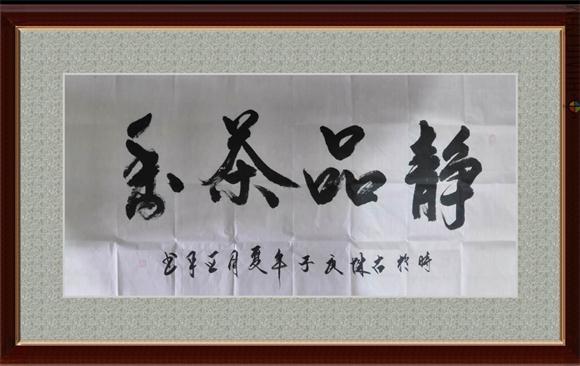 静品茶香
时於古城庚子年夏月书